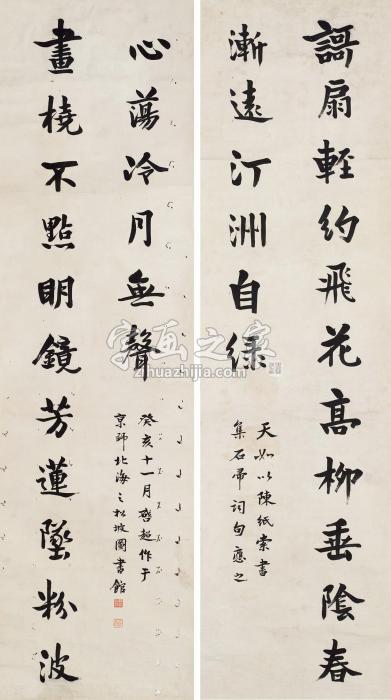 謌扇輕約飛花高柳垂陰春
漸遠汀洲自緑
天如以陳紙索書
集石帚詞句應之
畫橈不點明鏡芳蓮墜粉波
心蕩冷月無聲
癸亥十一月啓超作于
京師北海之松坡圖書館
字画之家
zihuazhijia.com